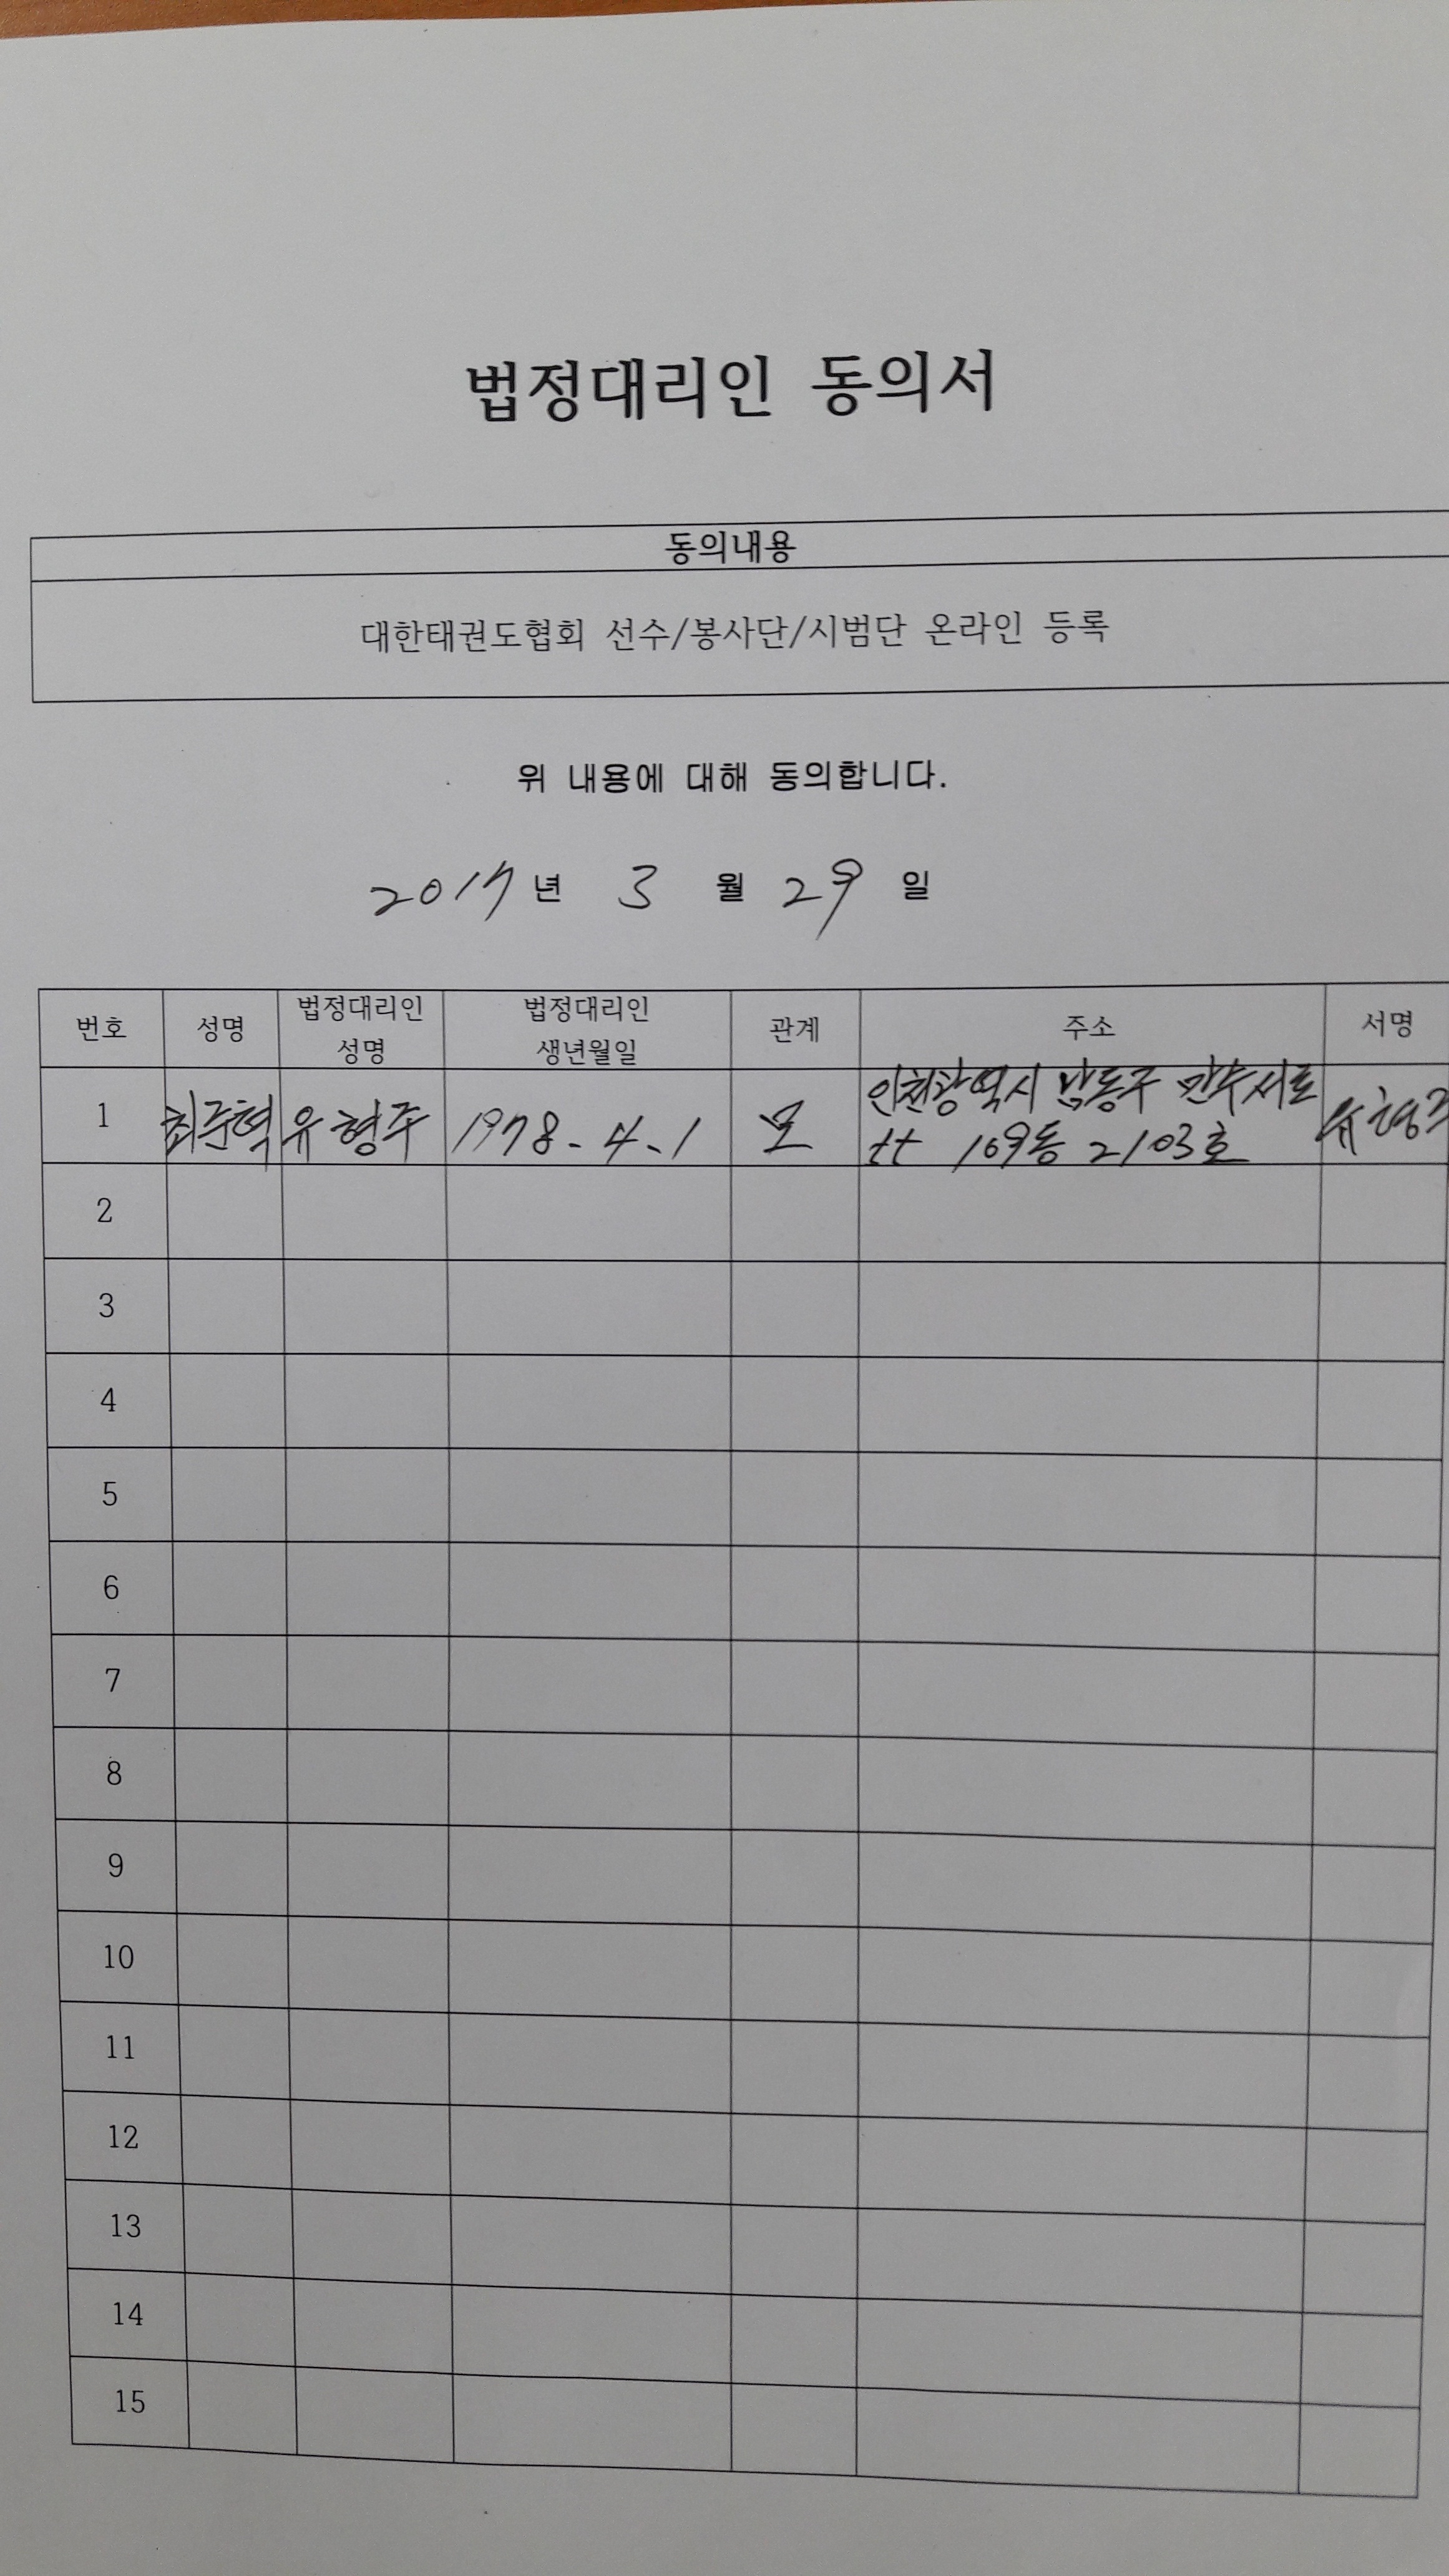 법정대리인 동의서
동의내용
대한태권도협회 선수/봉사단/시범단 온라인 등록
위 내용에 대해 동의합니다.
2017년 3 월 29 일
번호 성명 법정대리인 성명 법정대리인 생년월일 관계 주소 서명
1 최준혁 유형주 1978-4-1 모 인천광역시 남동구 만수서로
109동 2103호 유형주
2
3
4
5
6
7
8
9
10
11
12
13
14
15